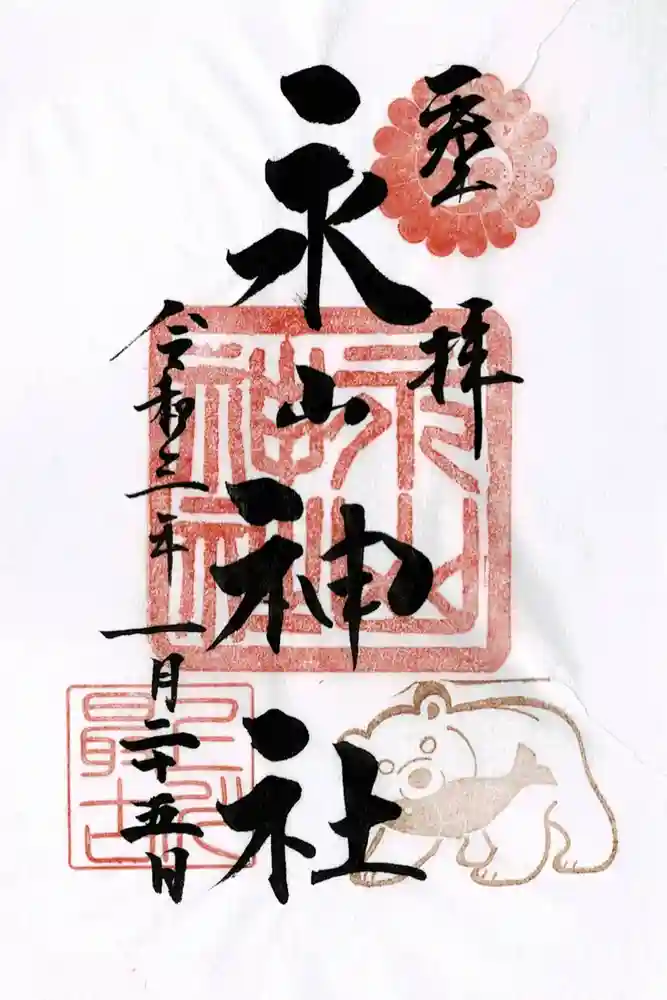 奉拝
永山神社
令和三年一月二十五日
永山神社